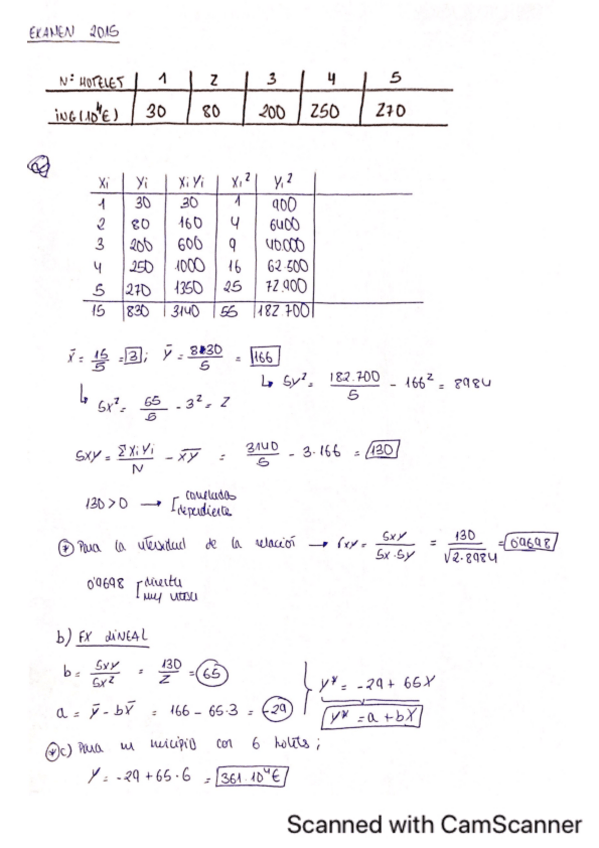 EXAMEN 2015
Nº HOTELES 1 2 3 4 5
ING (10⁴€) 30 80 200 250 270
a)
Xi Yi XiYi Xi² Yi²
1 30 30 1 900
2 80 160 4 6400
3 200 600 9 40.000
4 250 1000 16 62.500
5 270 1350 25 72.900
15 830 3140 55 182.700
x̄ = 15/5 = 3 ; ȳ = 830/5 = 166
↳ Sy² = 182.700/5 - 166² = 8984
↳ Sx² = 55/5 - 3² = 2
Sxy = ΣXiYi/N - x̄ȳ = 3140/5 - 3·166 = 130
130 > 0 → correladas
dependiente
* Para la intensidad de la relación → rxy = Sxy/Sx·Sy = 130/√2·8984 = 0'9698
0'9698 directa
muy intensa
b) FX LINEAL
b = Sxy/Sx² = 130/2 = 65
a = ȳ - bx̄ = 166 - 65·3 = -29
y* = -29 + 65X
y* = a + bX
* c) Para un municipio con 6 hoteles ;
y = -29 + 65·6 = 361·10⁴€
Scanned with CamScanner